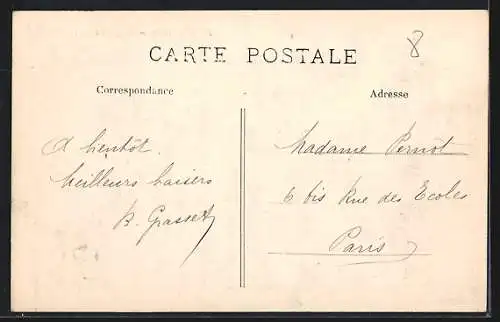 CARTE POSTALE
8
Correspondance
Adresse
A bientôt.
Meilleurs baisers
R. Grasset
Madame Pernot
6 bis Rue des Ecoles
Paris